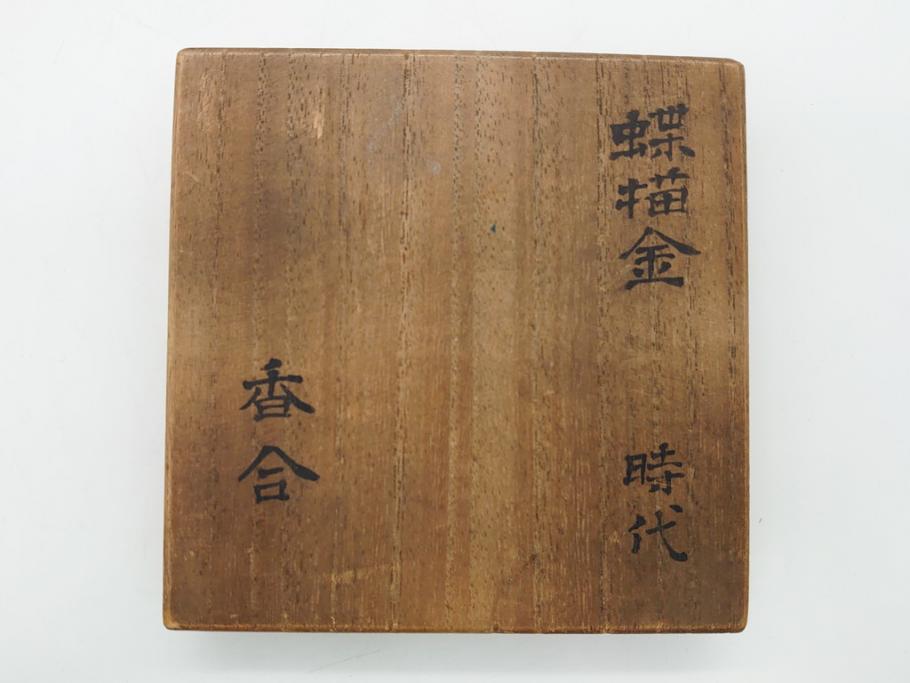 蝶描金
時代
香合